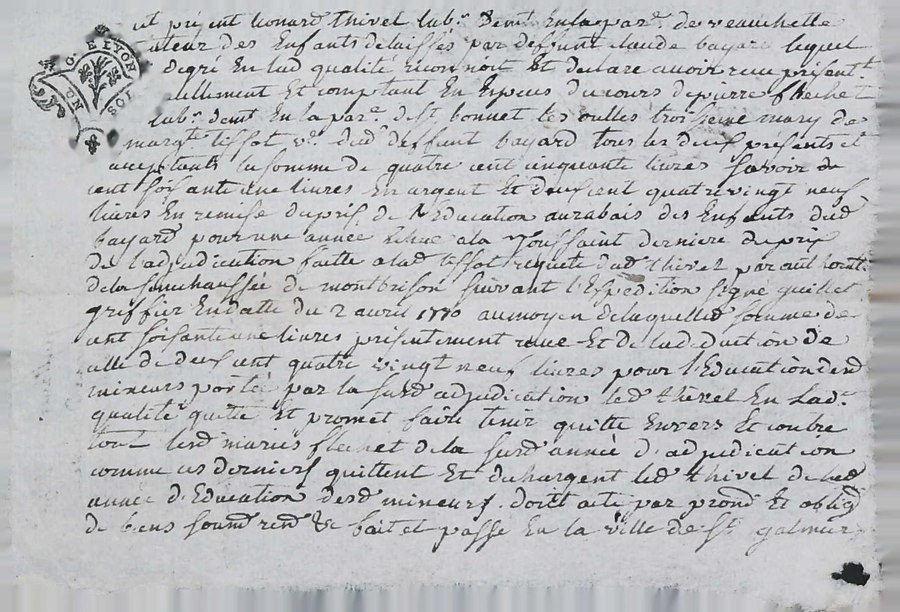 est présent Léonard Thivel lab.r dem.t en la par.e de veauchette
tuteur des Enfants delaissés par deffunt claude bayard lequel
degré En lad qualité reconnoit Et declare avoir reçu présent.t
réellement Et comptant En Especes du cours de pierre flechet
lab.r dem.t En la par.e de s.t bonnet les oulles troisième mary de
marg.te tissot v.e dud deffunt bayard tous les deux presents et
acceptants la somme de quatre cent cinquante livres savoir de
cent soisante une livres En argent Et deux cent quatre vingt neuf
livres En remise du prix de l'Education au rabais des Enfants dud
bayard pour une année Echue a la Toussaint derniere du prix
de l'adjudication faitte a lad tissot requete dud thivel par aut
de la senechaussée de montbrison suivant l'Expedition signé
greffier En datte du 2 avril 1770 au moyen de laquelle somme de
cent soisante une livres présentement reçue Et de la deduction de
celle de deux cent quatre vingt neuf livres pour l'Education desd
mineurs portée par la susd adjudication led thivel En lad.
qualité quitte Et promet faire tenir quitte Envers Et contre
tout lesd mariés flechet de la susd année d'adjudication
comme ces derniers quittent Et dechargent led thivel de lad
année d'Education desd mineurs. dont acte par prom Et oblig
de biens soum rend &c fait et passe En la ville de S.t galmier